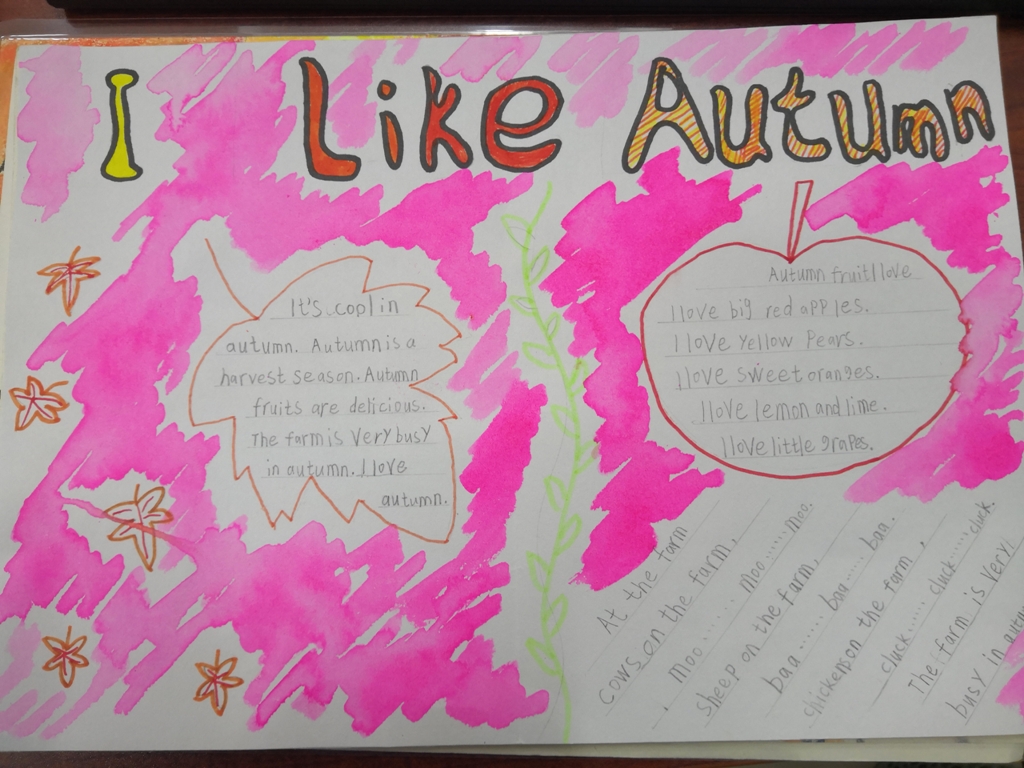 I Like Autumn
It's cool in
autumn. Autumn is a
harvest season. Autumn
fruits are delicious.
The farm is very busy
in autumn. I love
autumn.
Autumn fruit I love
I love big red apples.
I love yellow pears.
I love sweet oranges.
I love lemon and lime.
I love little grapes.
At the farm
Cows on the farm,
. moo...... moo......moo.
Sheep on the farm,
baa ...... baa ...... baa.
chickens on the farm,
cluck...... cluck......cluck.
The farm is very
busy in